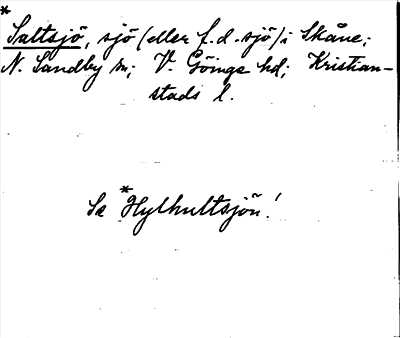 *
Saltsjö, sjö (eller f.d. sjö) i Skåne;
N. Sandby sn; V. Göinge hd; Kristian-
stads l.
Se *Hylhultsjön!